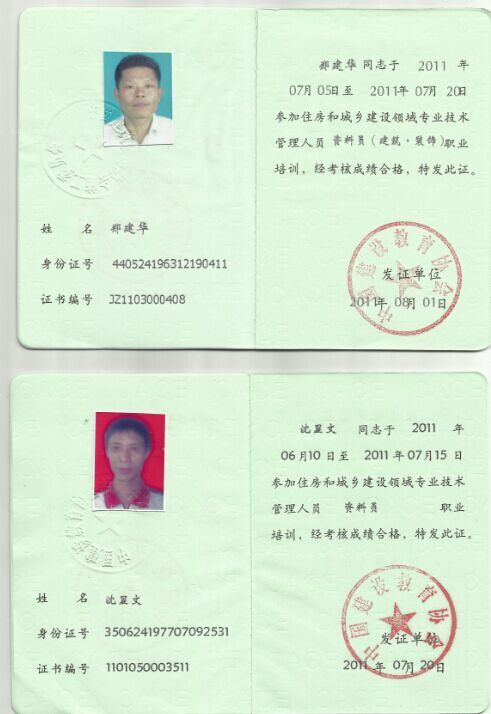 郑建华 同志于 2011 年
07月05日至 2011年07月20日
参加住房和城乡建设领域专业技术
管理人员 资料员（建筑·装饰）职业
培训，经考核成绩合格，特发此证。
姓 名 郑建华
身份证号 440524196312190411
证书编号 JZ1103000408
中国建设教育协会
发证单位
2011年 08月 01日
沈星文 同志于 2011 年
06月10日至 2011年07月15日
参加住房和城乡建设领域专业技术
管理人员 资料员 职业
培训，经考核成绩合格，特发此证。
姓 名 沈星文
身份证号 350624197707092531
证书编号 1101050003511
中国建设教育协会
发证单位
2011年 07月 20日